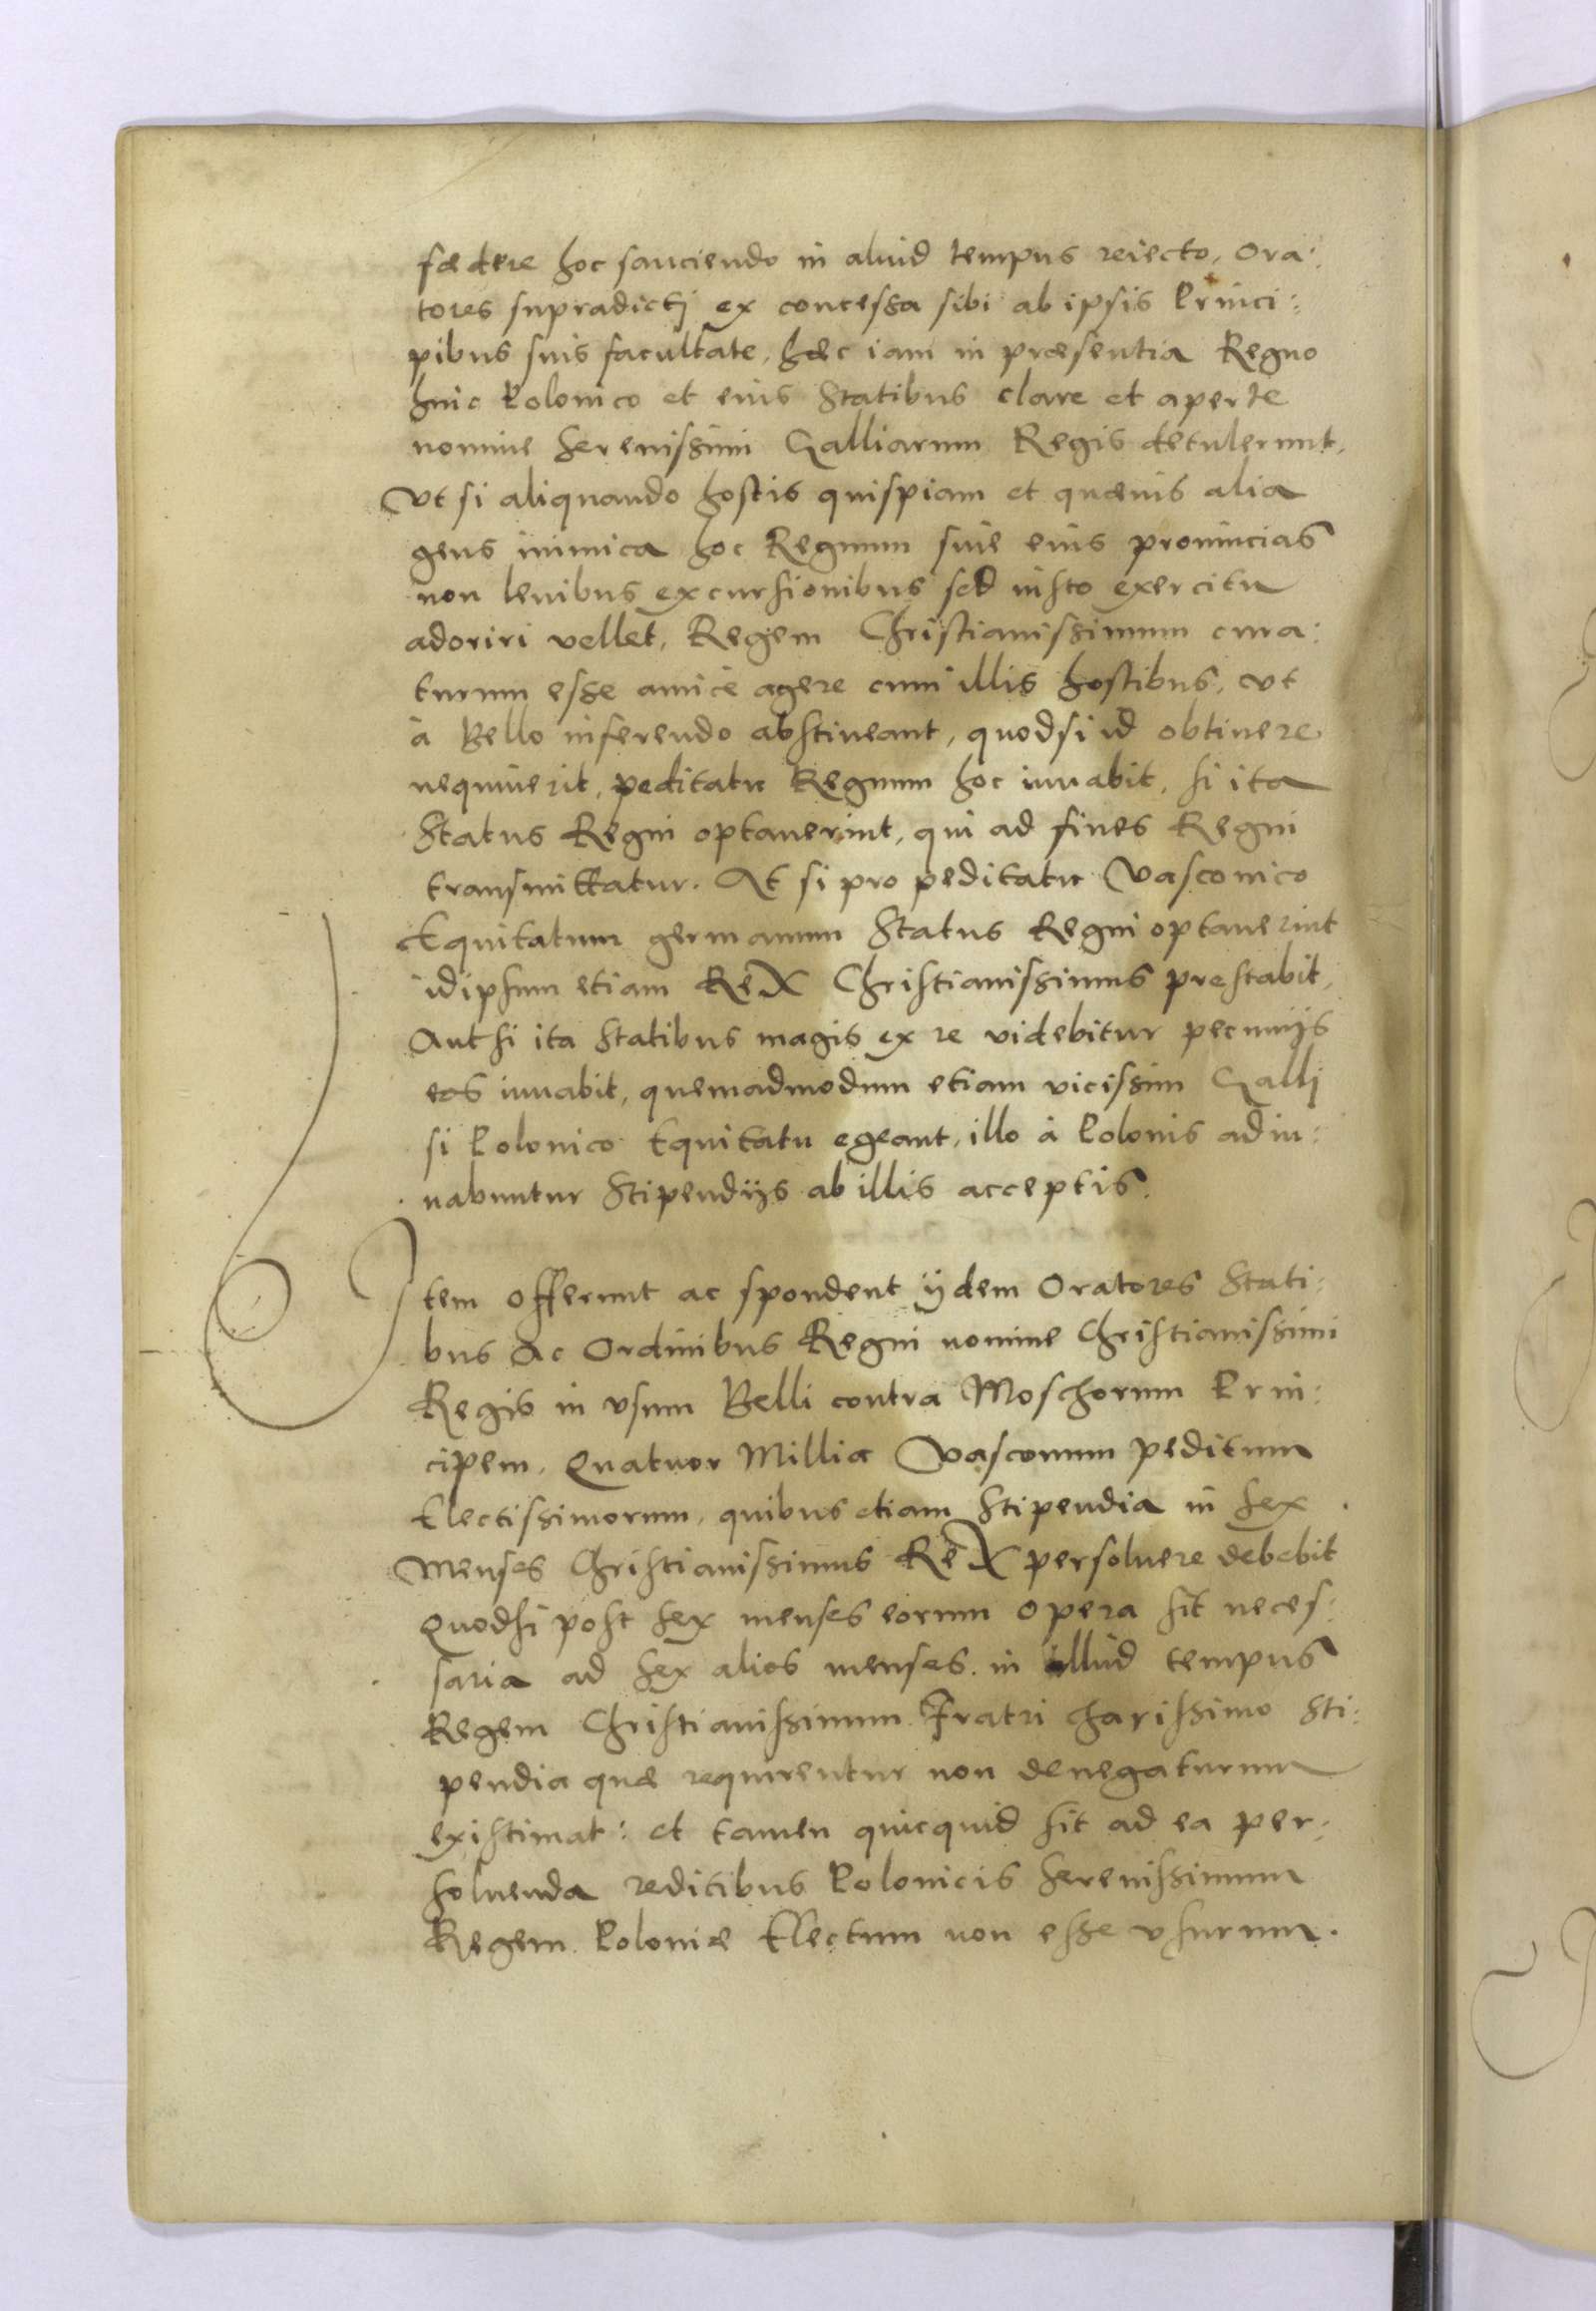 fœdere hoc sanciendo in aliud tempus reiecto, Ora:
tores supradictj ex concessa sibi ab ipsis Princi:
pibus suis facultate, hæc iam in præsentia Regno
huic Polonico et eius Statibus clare et aperte
nomine Serenissimi Galliarum Regis detulerunt,
Vt si aliquando hostis quispiam et quævis alia
gens inimica hoc Regnum siue eius prouincias
non leuibus excursionibus sed iusto exercitu
adoriri vellet, Regem Christianissimum cura:
turum esse amicè agere cum illis hostibus, vt
à Bello inferendo abstineant, quodsi id obtinere
nequiuerit, peditatu Regnum hoc iuuabit, si ita
Status Regni optauerint, qui ad fines Regni
transmittatur. At si pro peditatu Vasconico
Equitatum germanum Status Regni optauerint
idipsum etiam ReX Christianissimus prestabit,
Aut si ita Statibus magis ex re videbitur pecunijs
eos iuuabit, quemadmodum etiam vicissim Gallj
si Polonico Equitatu egeant, illo à Polonis adiu:
uabuntur Stipendijs ab illis acceptis.
Item offerunt ac spondent ijdem Oratores Stati:
bus Ac Ordinibus Regni nomine Christianissimi
Regis in vsum Belli contra Moschorum Prin:
cipem, Quatuor Millia Vasconum peditum
Electissimorum, quibus etiam Stipendia in Sex
Menses Christianissimus ReX persoluere debebit
Quodsi post Sex menses eorum opera sit neces:
saria ad Sex alios menses. in illud tempus
Regem Christianissimum Fratri charissimo Sti:
pendia quæ requirentur non denegaturum
existimat: et tamen quicquid sit ad ea per:
soluenda reditibus Polonicis Serenissimum
Regem Poloniæ Electum non esse vsurum.